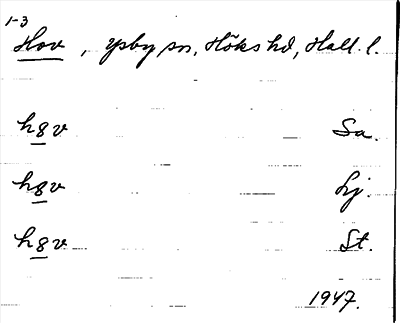 1-3
Hov, Ysby sn, Höks hd, Hall. l.
h8v Sa.
h8v Lj.
h8v St.
1947.